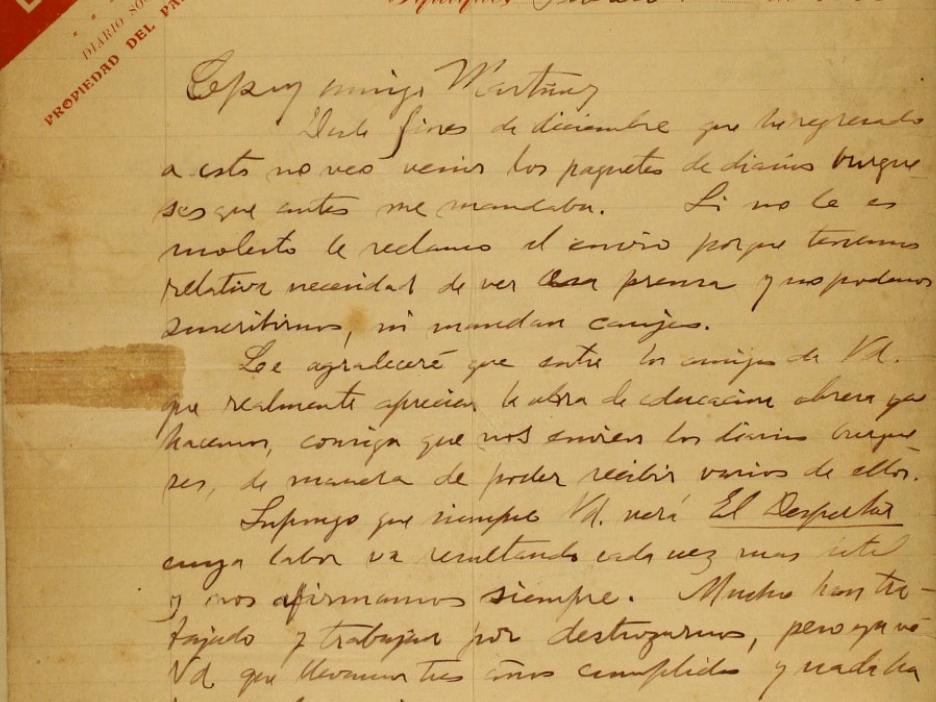 DIARIO SO
PROPIEDAD DEL PA
Iquique,
amigo Martínez
Desde fines de diciembre que he regresado
a esta no veo venir los paquetes de diarios burgue-
ses que antes me mandaba. Si no le es
molesto le reclamo el envío porque tenemos
relativa necesidad de ver esa prensa y no podemos
suscribirnos, ni mandan canjes.
Le agradeceré que entre los amigos de Vd.
que realmente aprecian la obra de educacion obrera que
hacemos, consiga que nos envien los diarios burgue
ses, de manera de poder recibir varios de ellos.
Supongo que siempre Vd. verá El Despertar
cuya labor va resultando cada vez mas util
y nos afirmamos siempre. Mucho han tra-
bajado y trabajan por destrozarnos, pero ya vé
Vd que llevamos tres años cumplidos y nada ha